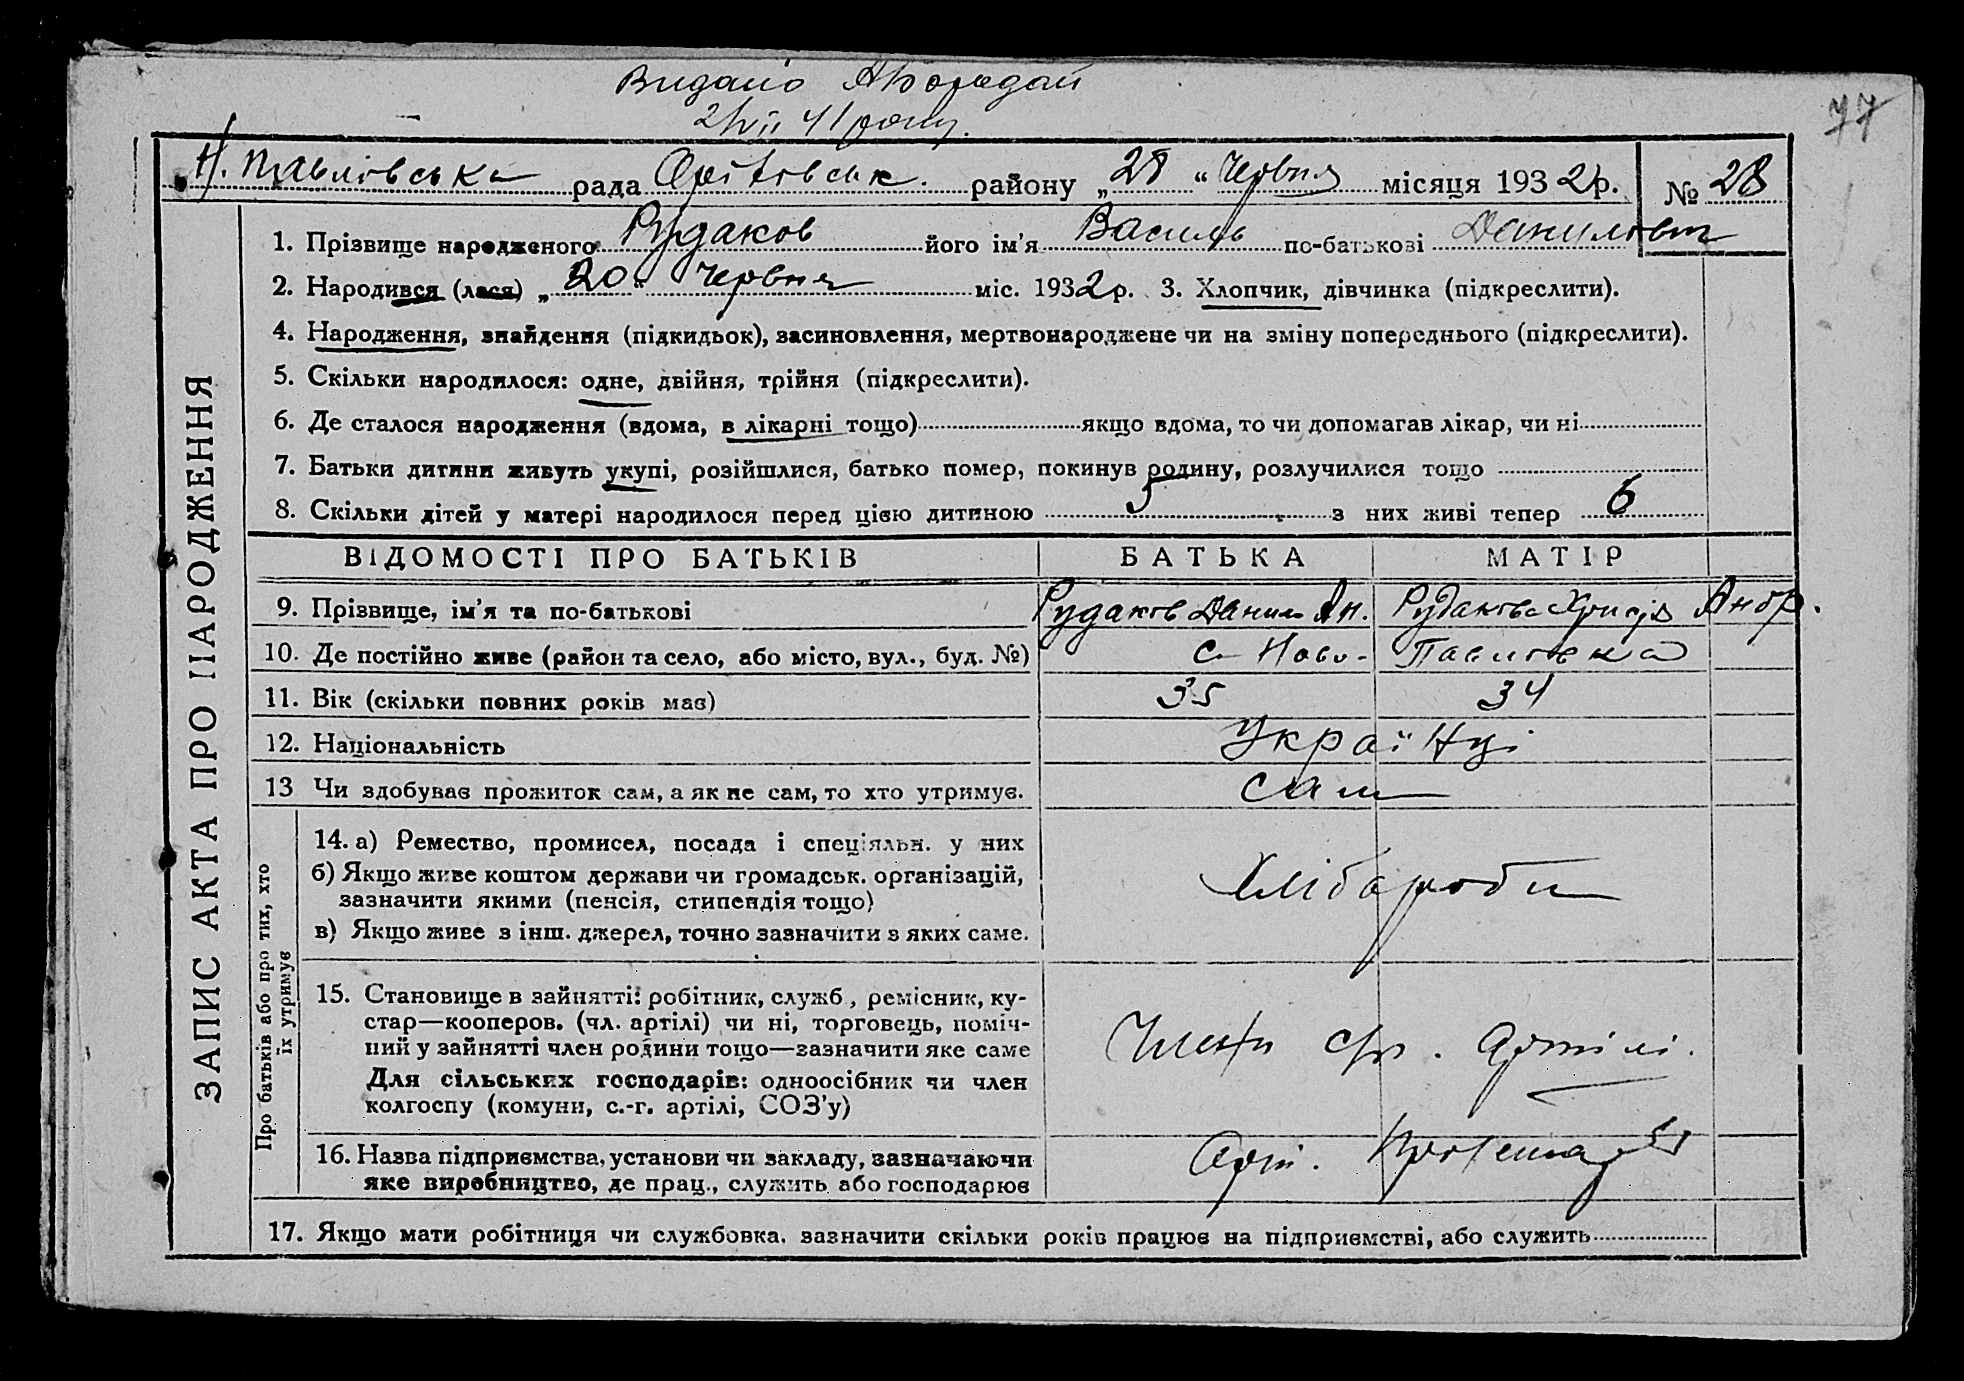 Видано
41 року.
77
Н. Павлівська рада Оріхівськ. району „28“ Червня місяця 1932 р. № 28
ЗАПИС АКТА ПРО НАРОДЖЕННЯ
1. Прізвище народженого Рудаков його ім’я Василь по-батькові Данилович
2. Народився (лася) „20“ Червня міс. 1932 р. 3. Хлопчик, дівчинка (підкреслити).
4. Народження, знайдення (підкидьок), засиновлення, мертвонароджене чи на зміну попереднього (підкреслити).
5. Скільки народилося: одне, двійня, трійня (підкреслити).
6. Де сталося народження (вдома, в лікарні тощо) якщо вдома, то чи допомагав лікар, чи ні
7. Батьки дитини живуть укупі, розійшлися, батько помер, покинув родину, розлучилися тощо
8. Скільки дітей у матері народилося перед цією дитиною 5 з них живі тепер 6
ВІДОМОСТІ ПРО БАТЬКІВ БАТЬКА МАТІР
9. Прізвище, ім’я та по-батькові Рудаков Данило Ан. Рудакова Хрисія Андр.
10. Де постійно живе (район та село, або місто, вул., буд. №) с. Ново-Павлівка
11. Вік (скільки повних років має) 35 34
12. Національність Українці
13 Чи здобуває прожиток сам, а як не сам, то хто утримує. сам
Про батьків або про тих, хто
їх утримує
14. а) Ремество, промисел, посада і спеціяльн. у них
б) Якщо живе коштом держави чи громадськ. організацій,
зазначити якими (пенсія, стипендія тощо)
в) Якщо живе з інш. джерел, точно зазначити з яких саме.
Хлібороби
15. Становище в зайнятті: робітник, служб., ремісник, ку-
стар—кооперов. (чл. артілі) чи ні, торговець, поміч-
ний у зайнятті член родини тощо—зазначити яке саме
Для сільських господарів: одноосібник чи член
колгоспу (комуни, с.-г. артілі, СОЗ’у)
Члени с/г. артілі.
16. Назва підприємства, установи чи закладу, зазначаючи
яке виробництво, де прац., служить або господарює
Арт.
17. Якщо мати робітниця чи службовка, зазначити скільки років працює на підприємстві, або служить